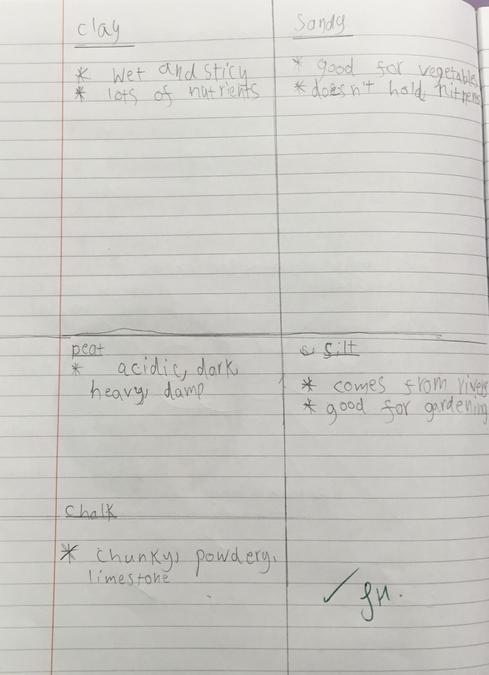 clay
* wet and sticy
* lots of nutrients
Sandy
* good for vegetables
* doesn't hold
peat
* acidic, dark,
heavy, damp
s silt
* comes from rivers
* good for gardening
chalk
* chunky, powdery,
limestone
✓